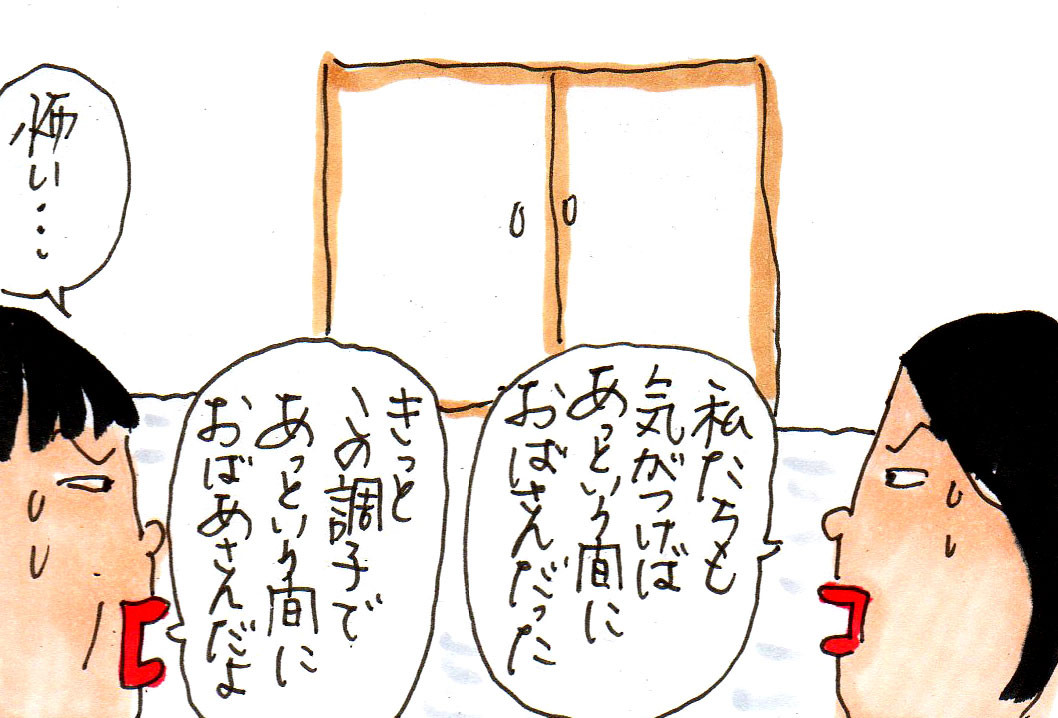 私たちも
気がつけば
あっという間に
おばさんだった
きっと
この調子で
あっという間に
おばあさんだよ
怖い・・・